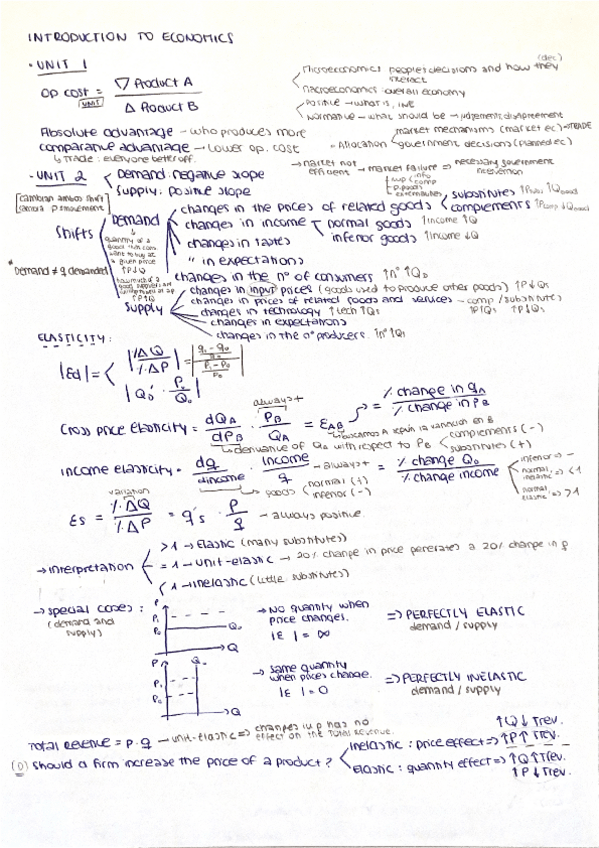 INTRODUCTION TO ECONOMICS
· UNIT 1
op cost = ▽ Product A / Δ Product B
UNIT
Microeconomics peoples decisions and how they interact
(dec)
Macroeconomics overall economy
Positive → what is, live
Normative → what should be → judgement/disagreement
Absolute advantage → who produces more
comparative advantage → lower op. cost
↳ TRADE: everyone better off.
· Allocation
market mechanisms (market ec) → TRADE
government decisions (planned ec)
→ market not efficient → market failure ⇒ necessary government intervention
· UNIT 2
Demand: negative slope
Supply: positive slope
Shifts
Demand
quantity of a good that cons. want to buy at a given price
↑P↓Q
Demand ≠ q demanded
changes in the prices of related goods
substitutes
complements
changes in income
normal goods ↑income ↑Q
inferior goods ↑income ↓Q
changes in tastes
" in expectations
changes in the nº of consumers ↑nº ↑QD
↑P↑Q
Supply
changes in input prices (goods used to produce other goods) ↑P↓Qs
changes in prices of related goods and services → comp/substitutes
↑P↑Qs ↑P↓Qs
changes in technology ↑tech ↑Qs
changes in expectations
changes in the nº producers. ↑nº ↑Qs
ELASTICITY:
|Ed| = |%ΔQ / %ΔP| = |(q₁-q₀)/q₀ / (P₁-P₀)/P₀|
|Q'D · P₀/Q₀|
always +
Cross price elasticity = dQA/dPB · PB/QA = EAB = % change in qA / % change in PB
↳ derivative of QA with respect to PB
complements (-)
substitutes (+)
income elasticity = dq/dincome · income/q → always + = % change QD / % change income
goods
normal (+)
inferior (-)
inferior → -
normal, inelastic → <1
normal elastic → >1
variation
Es = %ΔQ / %ΔP = q's · P/q → always positive
→ interpretation
>1 → Elastic (many substitutes)
= 1 → unit-elastic → 20% change in price generates a 20% change in q
<1 → inelastic (little substitutes)
→ special cases:
(demand and supply)
P
P₁
P₀
Q₀
Q
→ No quantity when price changes.
|E| = ∞
⇒ PERFECTLY ELASTIC
demand / supply
P
Q₀
P₁
P₀
Q
→ same quantity when prices change.
|E| = 0
⇒ PERFECTLY INELASTIC
demand / supply
Total Revenue = P·q → unit-elastic ⇒ changes in p has no effect on the Total Revenue.
(D) Should a firm increase the price of a product?
↑Q↓Trev.
inelastic: price effect ⇒ ↑P↑Trev.
Elastic: quantity effect ⇒ ↑Q↑Trev.
↑P↓Trev.